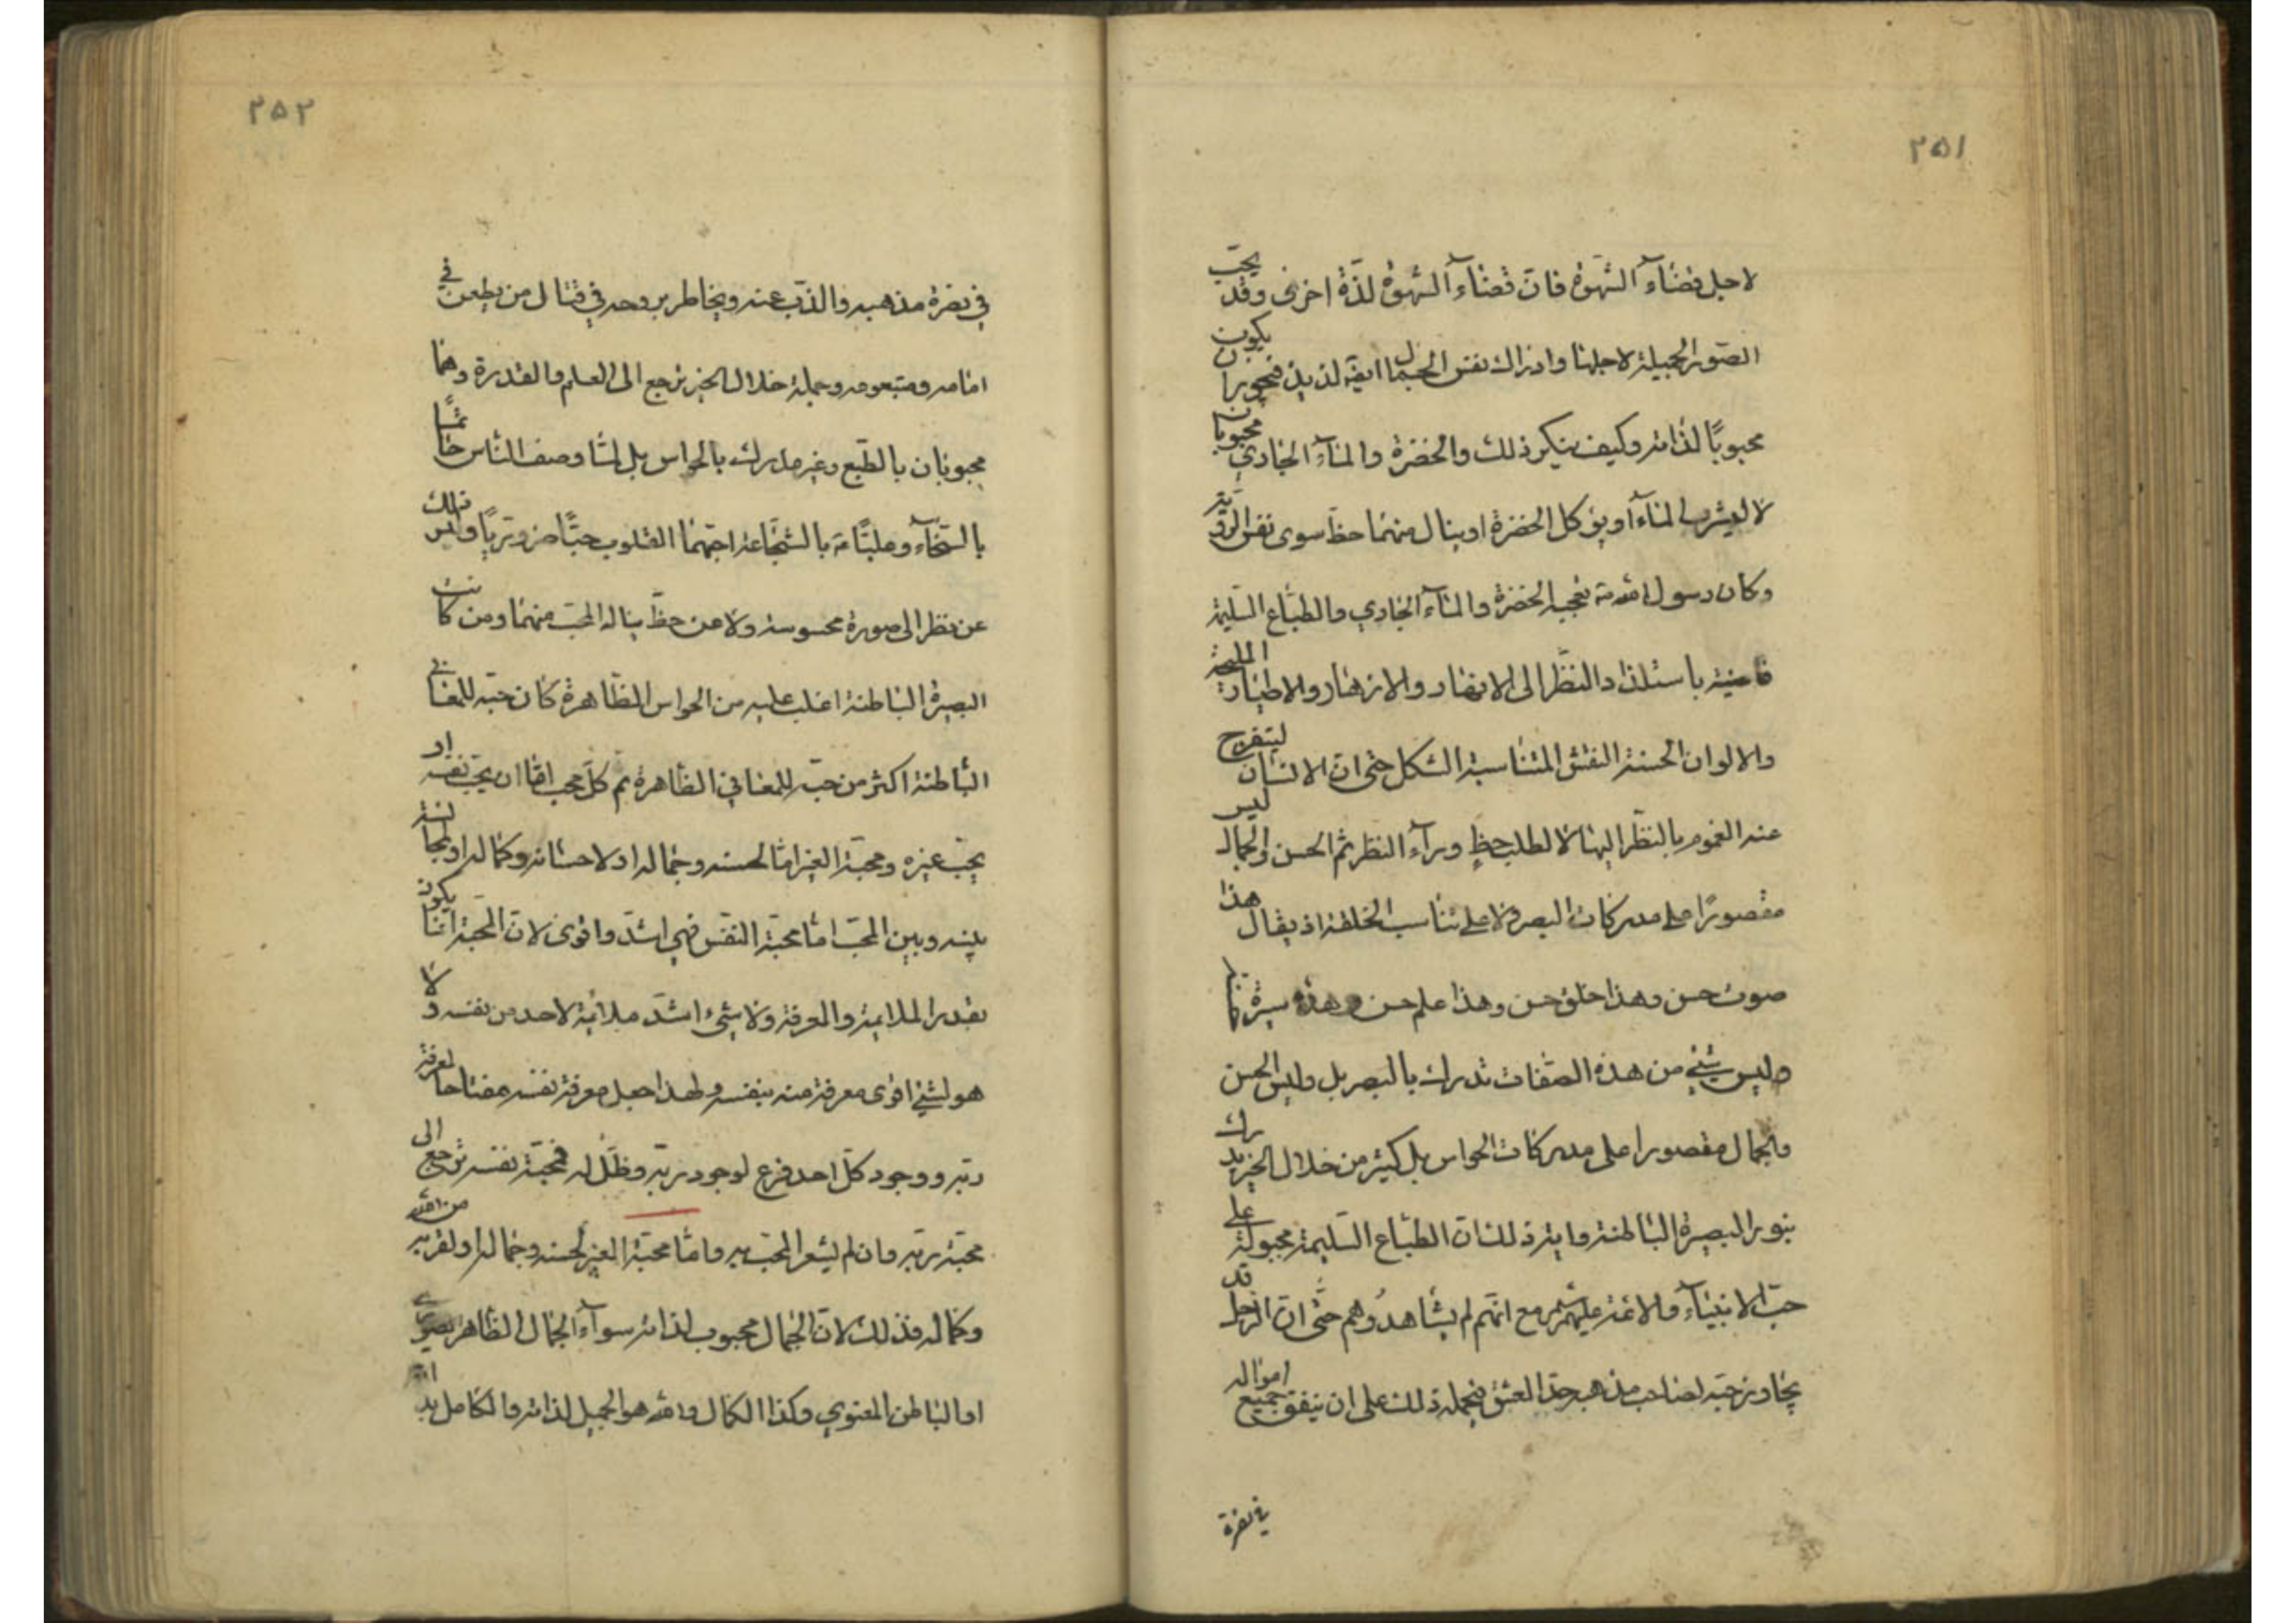 ٢٥١
لاجل قضاء الشهوة فان قضاء الشهوة لذة اخرى وقد يحب
الصور الجميلة لاجلها وادراك نفس الجمال ايضا لذيذ فيجوز ان يكون
محبوبًا لذاته وكيف ينكر ذلك والخضرة والماء الجاري محبوبان
لا ليشرب الماء او يؤكل الخضرة او ينال منهما حظ سوى نفس الرؤية
وكان رسول الله ص يعجبه الخضرة والماء الجاري والطباع السليمة
قاضية باستلذاذ النظر الى الانهار والازهار والاطيار المليحة
والالوان الحسنة النقش المتناسبة الشكل حتى ان الانسان ليتفرج
عنه الغموم بالنظر اليها لا لطلب حظٍ وراء النظر ثم الحسن والجمال ليس
مقصورًا على مدركات البصر ولا على تناسب الخلقة اذ يقال هذا
صوت حسن وهذا خلق حسن وهذا علم حسن وهذه سيرة
وليس شيء من هذه الصفات تدرك بالبصر بل وليس الحسن
والجمال مقصورا على مدركات الحواس بل كثير من خلال الخير يدرك
بنور البصيرة الباطنة واية ذلك ان الطباع السليمة مجبولة على
حب الانبياء والائمة عليهم مع انهم لم يشاهدوهم حتى ان الرجل قد
يجاوز حبه لصاحب مذهبه حد العشق فيحمله ذلك على ان ينفق جميع امواله
في نصرة
٢٥٢
في نصرة مذهبه والذب عنه ويخاطر بروحه في قتال من يطعن في
امامه ومتبوعه وجملة خلال الخير ترجع الى العلم والقدرة وهما
محبوبان بالطبع وغير مدرك بالحواس بل لما وصف الناس حاتمًا
بالسخاء وعليًا ع بالشجاعة احبهما القلوب حبًا ضروريًا وليس ذلك
عن نظر الى صورة محسوسة ولا عن حظ يناله المحب منهما ومن كانت
البصيرة الباطنة اغلب عليه من الحواس الظاهرة كان حبه للمعاني
الباطنة اكثر من حبه للمعاني الظاهرة ثم كل محب اما ان يحب نفسه او
يحب غيره ومحبة الغير اما لحسنه وجماله او لاحسانه وكماله او لمجانسة
بينه وبين المحب اما محبة النفس فهي اشد واقوى لان المحبة انما يكون
بقدر الملايمة والمعرفة ولا شيء اشد ملائمة لاحد من نفسه ولا
هو لشيء اقوى معرفة منه بنفسه ولهذا جعل معرفة نفسه مفتاحا لمعرفة
ربه ووجود كل احد فرع لوجود ربه وظل له فمحبة نفسه ترجع الى
محبة ربه وان لم يشعر المحب به واما محبة الغير لحسنه وجماله او لقربه من الله
وكماله فذلك لان الجمال محبوب لذاته سواء الجمال الظاهر الصوري
او الباطن المعنوي وكذا الكمال والله هو الجميل لذاته والكامل بذاته